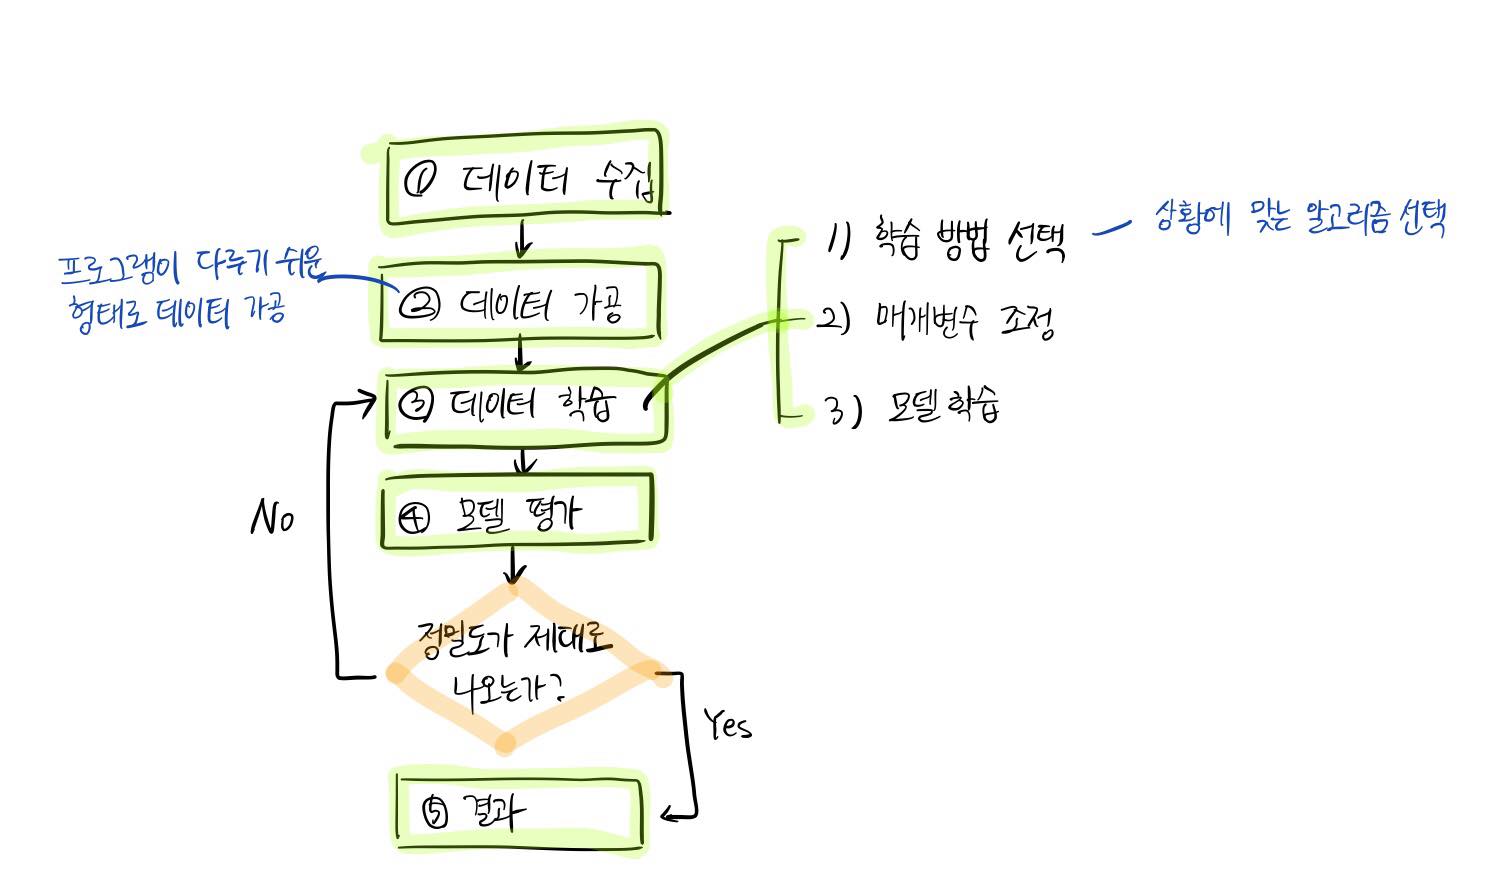 ① 데이터 수집
프로그램이 다루기 쉬운
형태로 데이터 가공
② 데이터 가공
③ 데이터 학습
1) 학습 방법 선택
상황에 맞는 알고리즘 선택
2) 매개변수 조정
3) 모델 학습
④ 모델 평가
No
정밀도가 제대로
나오는가?
Yes
⑤ 결과